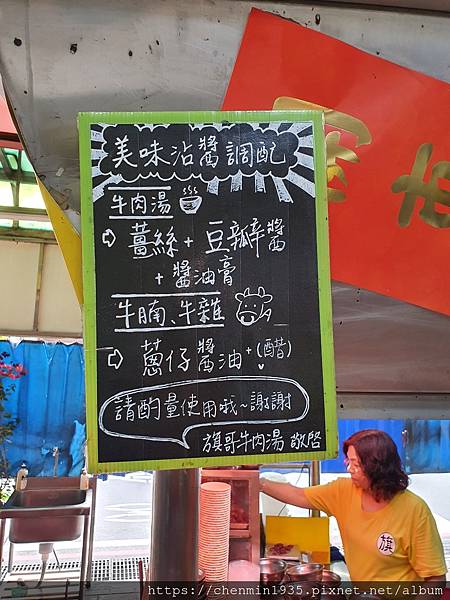 美味沾醬調配
牛肉湯
薑絲+豆瓣醬
+醬油膏
牛腩、牛雜
蔥仔醬油+(醋)
請酌量使用哦~謝謝
旗哥牛肉湯 敬啓
旗
https://chenmin1935.pixnet.net/album